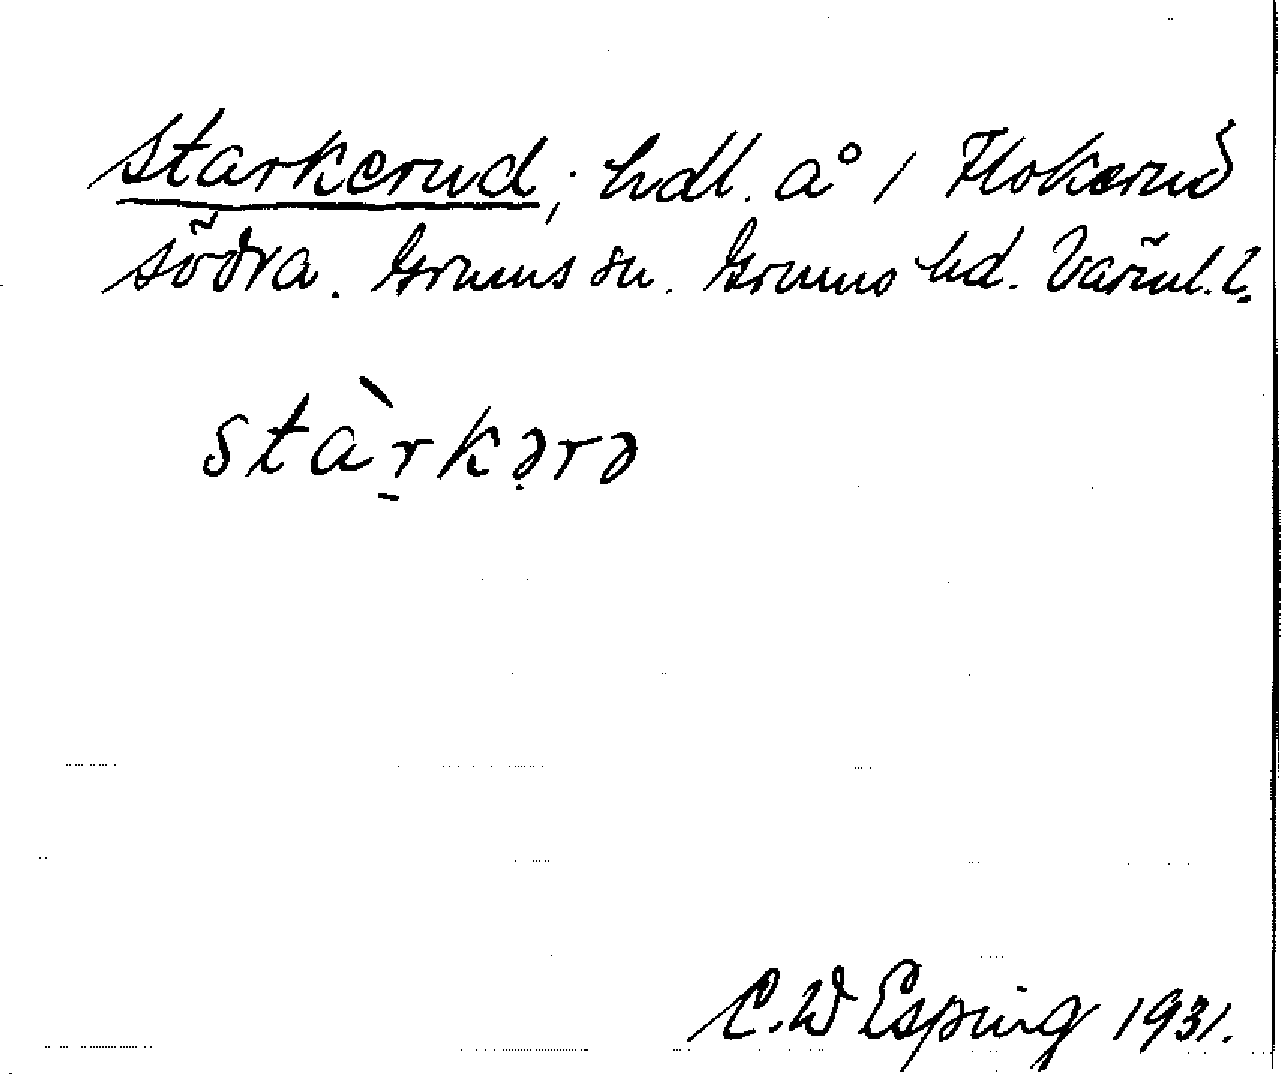 Starkerud; hdl. å 1 Flokerud
södra. Grums sn. Grums hd. Värml. l.
stàr̠kərə
C. W Esping 1931.